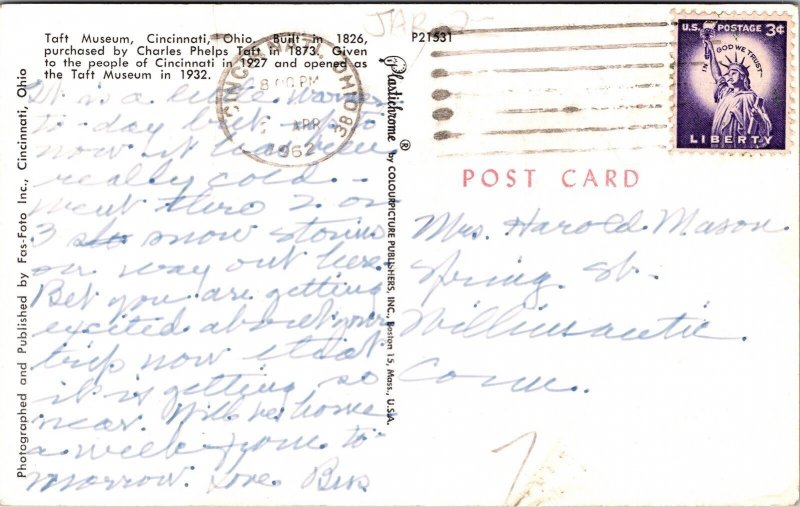 Taft Museum, Cincinnati, Ohio. Built in 1826,
purchased by Charles Phelps Taft in 1873. Given
to the people of Cincinnati in 1927 and opened as
the Taft Museum in 1932.
It is a little warmer
to-day but
now it has been
really cold. -
went there 2 or
3 snow storms
on way out here.
Bet you are getting
excited about your
trip now that
it is getting so
near. Will be home
a week from to-
morrow. Love
Photographed and Published by Fas-Foto Inc., Cincinnati, Ohio
Plastichrome ® by COLOURPICTURE PUBLISHERS, INC., Boston 15, Mass., U.S.A.
P21531
CINCINNATI, OHIO
8:00 PM
APR
1962
U.S. POSTAGE 3¢
IN GOD WE TRUST
LIBERTY
POST CARD
Mrs. Harold Mason
Spring St.
Willimantic
Conn.